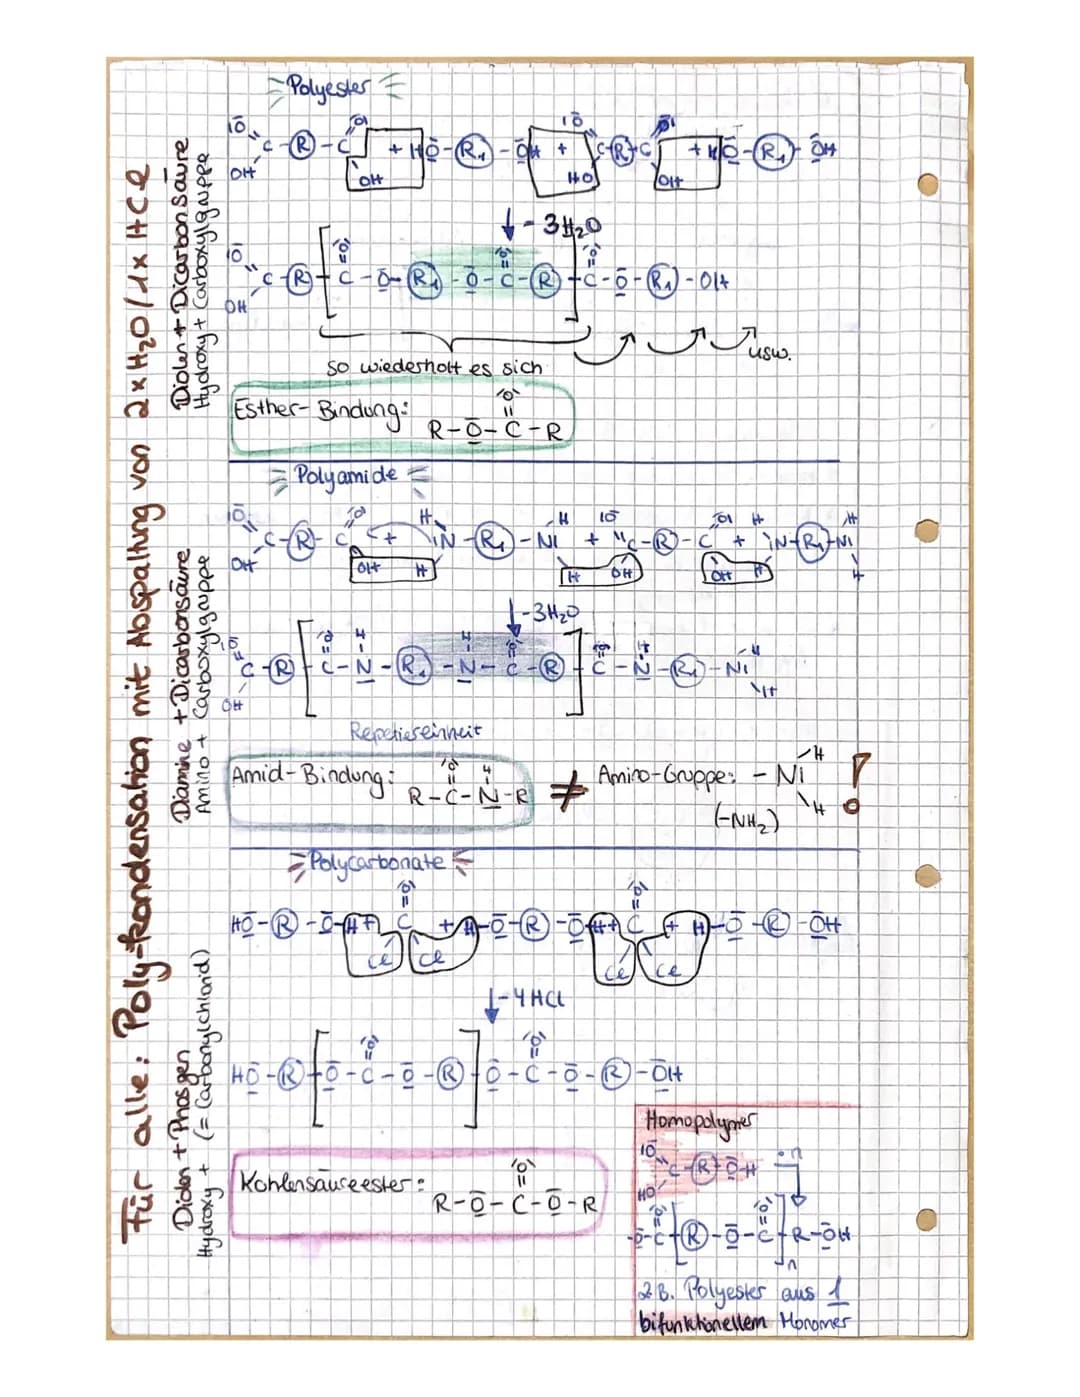 Für alle: Poly-kondensation mit Abspaltung von 2xH₂O/1x HCl
Polyester
Diolen + Dicarbonsäure
Hydroxy + Carboxylgruppe
- 3H₂O
so wiederholt es sich
usw.
Esther-Bindung:
R-O-C-R
Polyamide
Diamine + Dicarbonsäure
Amino + Carboxylgruppe
-3H₂O
Repetiereinheit
Amid-Bindung:
R-C-N-R
≠
Amino-Gruppe: -NI
(-NH₂)
!
Polycarbonate
Diolen + Phosgen
Hydroxy + (= Carbonylchlorid)
-4HCl
HO-R-[O-C-O-R]-O-C-O-R-OH
Kohlensäureester:
R-O-C-O-R
Homopolymer
·n
z.B. Polyester aus 1
bifunktionellem Monomer